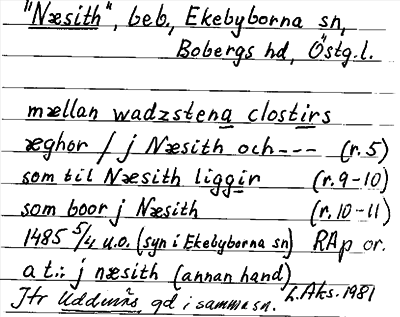 "Næsith", beb., Ekebyborna sn,
Bobergs hd, Östg.l.
mællan wadzstena clostirs
æghor / j Næsith och --- (r.5)
som til Næsith liggir (r.9-10)
som boor j Næsith (r.10-11)
1485 5/4 u.o. (syn i Ekebyborna sn) RAp or.
a t.: j næsith (annan hand)
Jfr Uddnäs gd i samma sn. L.Aks. 1981